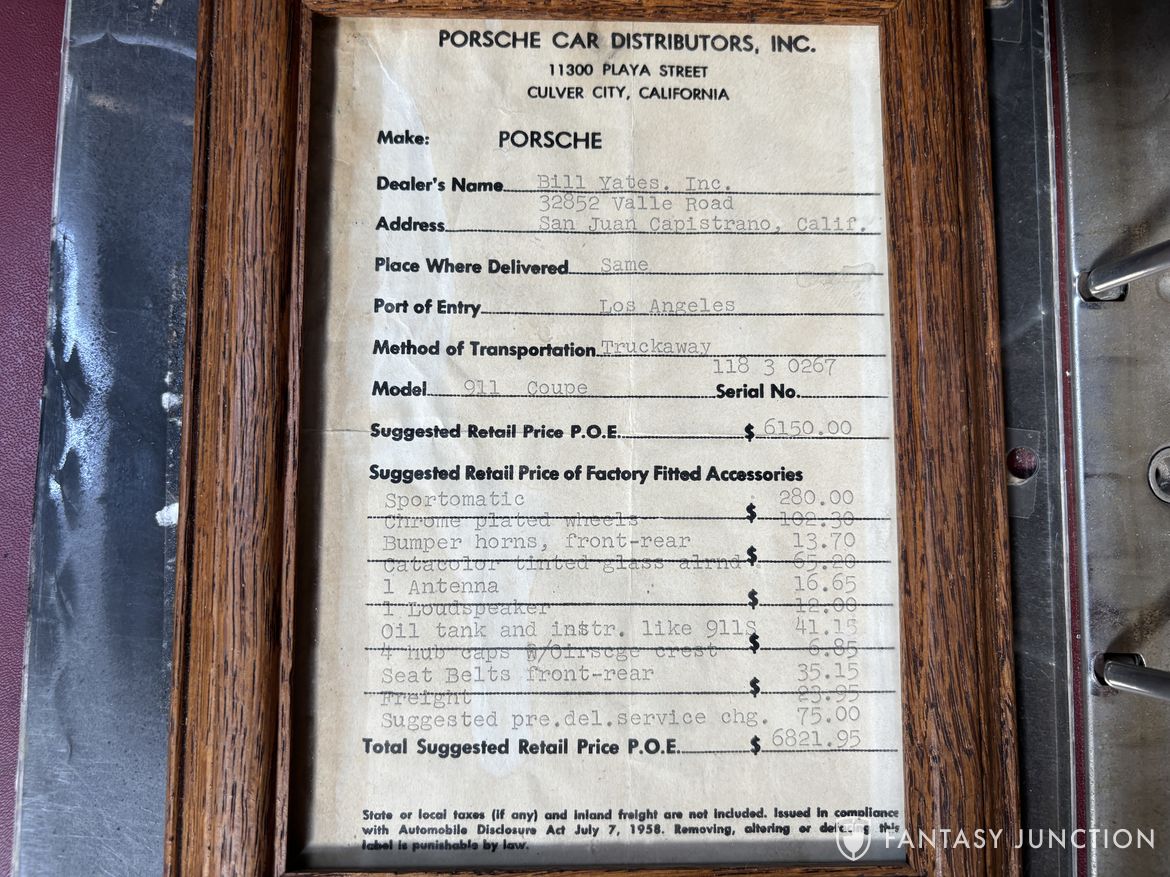 PORSCHE CAR DISTRIBUTORS, INC.
11300 PLAYA STREET
CULVER CITY, CALIFORNIA
Make: PORSCHE
Dealer's Name Bill Yates, Inc.
32852 Valle Road
Address San Juan Capistrano, Calif.
Place Where Delivered Same
Port of Entry Los Angeles
Method of Transportation Truckaway
118 3 0267
Model 911 Coupe Serial No.
Suggested Retail Price P.O.E. $ 6150.00
Suggested Retail Price of Factory Fitted Accessories
Sportomatic $ 280.00
Chrome plated wheels 102.30
Bumper horns, front-rear $ 13.70
Catacolor tinted glass alrnd 65.20
1 Antenna $ 16.65
1 Loudspeaker 12.00
Oil tank and instr. like 911S $ 41.15
4 hub caps crest 6.85
Seat Belts front-rear $ 35.15
Freight 23.95
Suggested pre.del.service chg. 75.00
Total Suggested Retail Price P.O.E. $ 6821.95
State or local taxes (if any) and inland freight are not included. Issued in compliance
with Automobile Disclosure Act July 7, 1958. Removing, altering or defacing this
label is punishable by law.
FANTASY JUNCTION